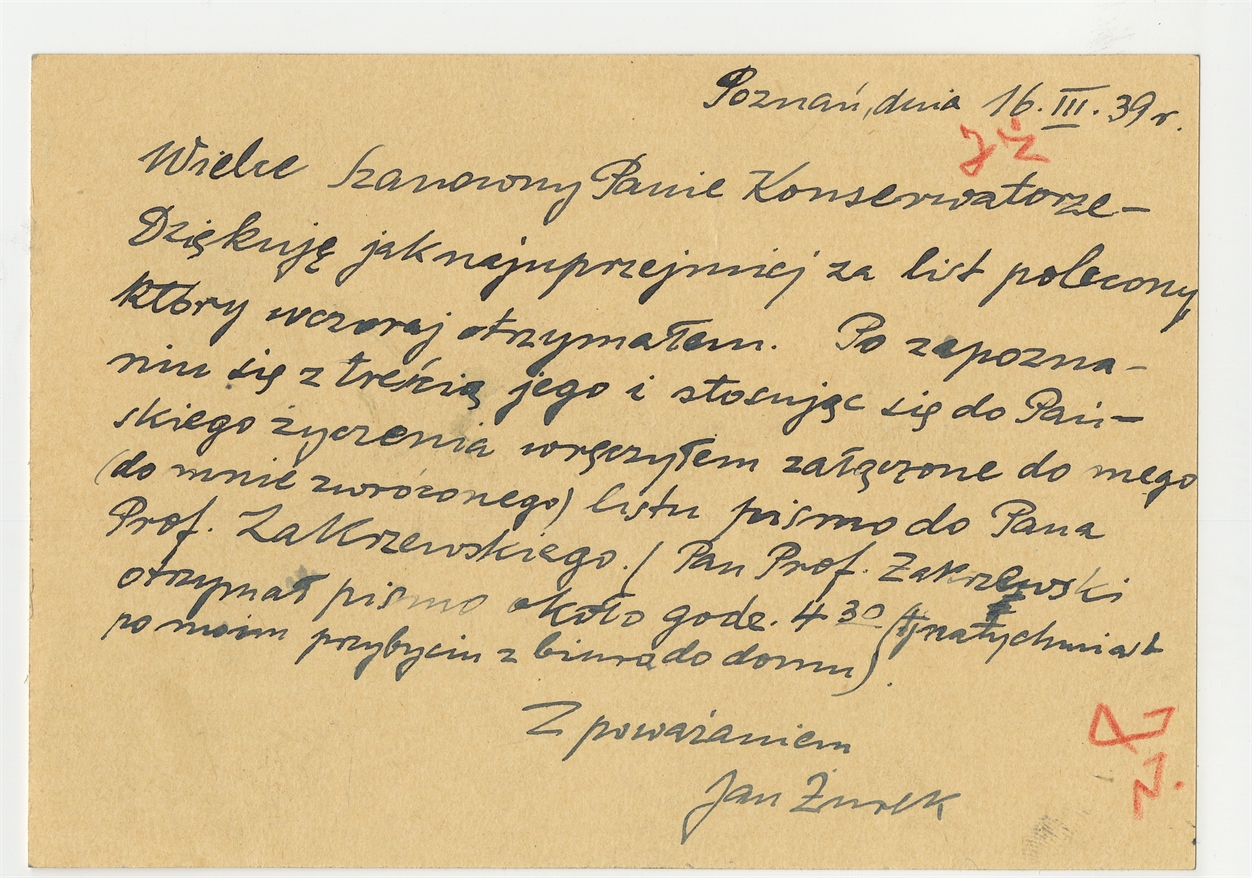 Poznań, dnia 16. III. 39 r.
J Ż
Wielce Szanowny Panie Konserwatorze –
Dziękuję jaknajuprzejmiej za list polecony
który wczoraj otrzymałem. Po zapozna-
niu się z treścią jego i stosując się do Pań-
skiego życzenia wręczyłem załączone do mego
(do mnie zwróconego) listu pismo do Pana
Prof. Zakrzewskiego. / Pan Prof. Zakrzewski
otrzymał pismo około godz. 4 30 (tj natychmiast
po moim przybyciu z biura do domu).
Z poważaniem
Jan Żurek